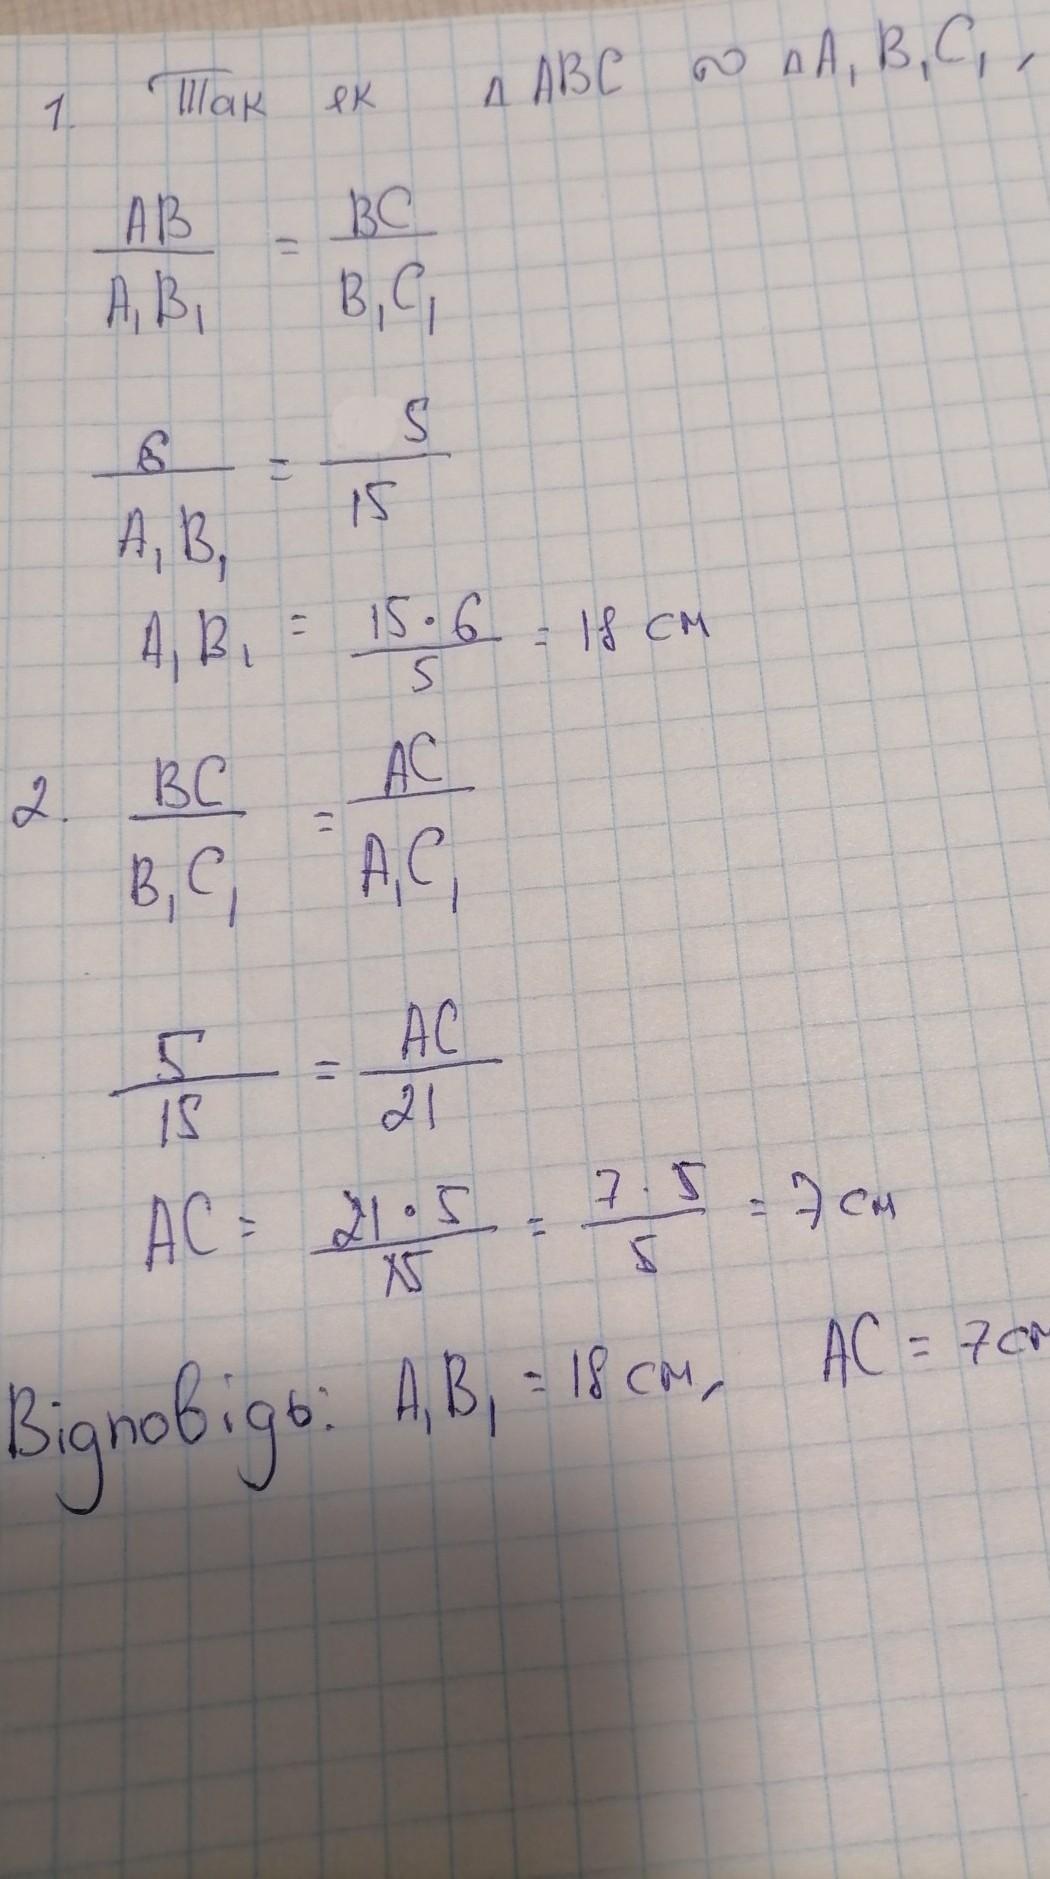 1. Так як △ABC ∾ △A₁B₁C₁,
AB/A₁B₁ = BC/B₁C₁
6/A₁B₁ = 5/15
A₁B₁ = 15·6/5 = 18 см
2. BC/B₁C₁ = AC/A₁C₁
5/15 = AC/21
AC = 21·5/15 = 7·5/5 = 7 см
Відповідь: A₁B₁ = 18 см, AC = 7 см